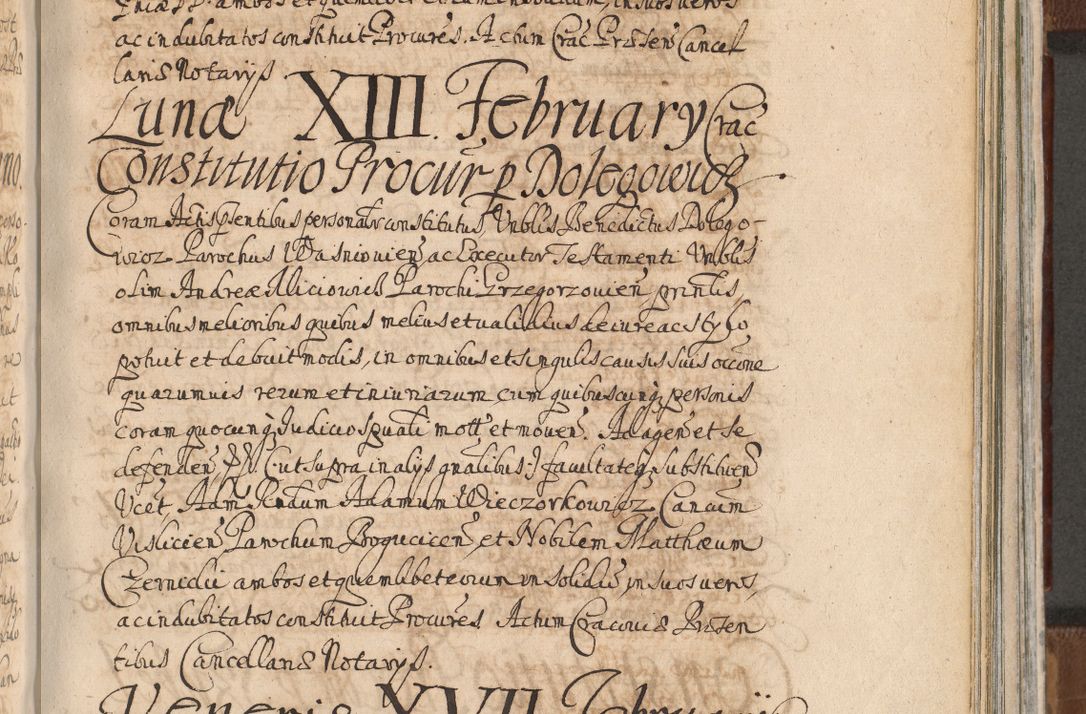 ac indubitatos constituit Procures. Actum Crac Præsen Cancel
lariæ Notarijs
Lunæ XIII. February Crac
Constitutio Procur p Dolęgowicz
Coram Actis pntibus personalr constitutus Vnblis Benedictus Dolęgo-
wicz Parochus Wasniovien ac Executor Testamenti Vnblis
olim Andreæ Miciowicz Parochi Grzegorzovien prinlis
omnibus melioribus quibus melius et validius de iure ac stylo
potuit et debuit modis, in omnibus et singulis causis suis occone
quarumvis rerum et iniuriarum cum quibuscunq personis
coram quocunq Judicio spuali mott et moven. Ad agen et se
defenden PP (: ut supra in alijs qualibus :) facultateq substituen
Vcet, Adm Rndum Adamum Wieczorkowicz Cancum
Vislicien Parochum Bogucicen, et Nobilem Matthæum
Czernicki ambos et quemlibet eorum in solidu, in suos veros,
ac indubitatos constituit Procures Actum Cracoviæ Præsen
tibus Cancellariæ Notarijs.
Veneris XVII Februarii